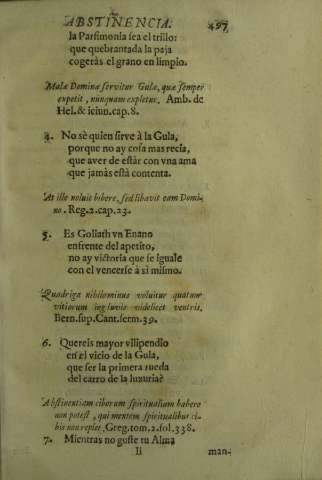 ABSTINENCIA. 497
la Parsimonia sea el trillo:
que quebrantada la paja
cogeràs el grano en limpio.
Malæ Dominæ servitur Gulæ, quæ semper
expetit, nunquam expletur. Amb. de
Hel. & ieiun. cap. 8.
4. No sè quien sirve à la Gula,
porque no ay cosa mas recia,
que aver de estàr con vna ama
que jamàs està contenta.
At ille noluit bibere, sed libavit eam Domi-
no. Reg. 2. cap. 23.
5. Es Goliath vn Enano
enfrente del apetito,
no ay victoria que se iguale
con el vencerse à si mismo.
Quadriga nihilominus voluitur quatuor
vitiorum ingluvie videlicet ventris.
Bern. sup. Cant. serm. 39.
6. Quereis mayor vilipendio
en el vicio de la Gula,
que ser la primera rueda
del carro de la luxuria?
Abstinentiam ciborum spiritualium habere
non potest, qui mentem spiritualibus ci-
bis non replet, Greg. tom. 2. fol. 338.
7. Mientras no guste tu Alma
Ii man-